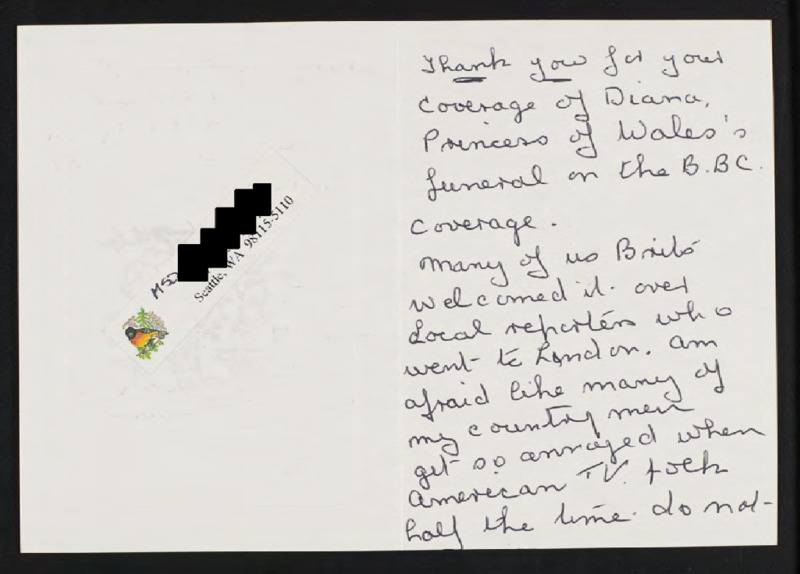 MSJ
Seattle, WA 98115-5110
Thank you for your
coverage of Diana,
Princess of Wales's
funeral on the B.BC.
coverage.
Many of us Brits
welcomed it. over
Local reporters who
went to London. am
afraid like many of
my country men
get so annoyed when
American TV. folk
half the time. do not-